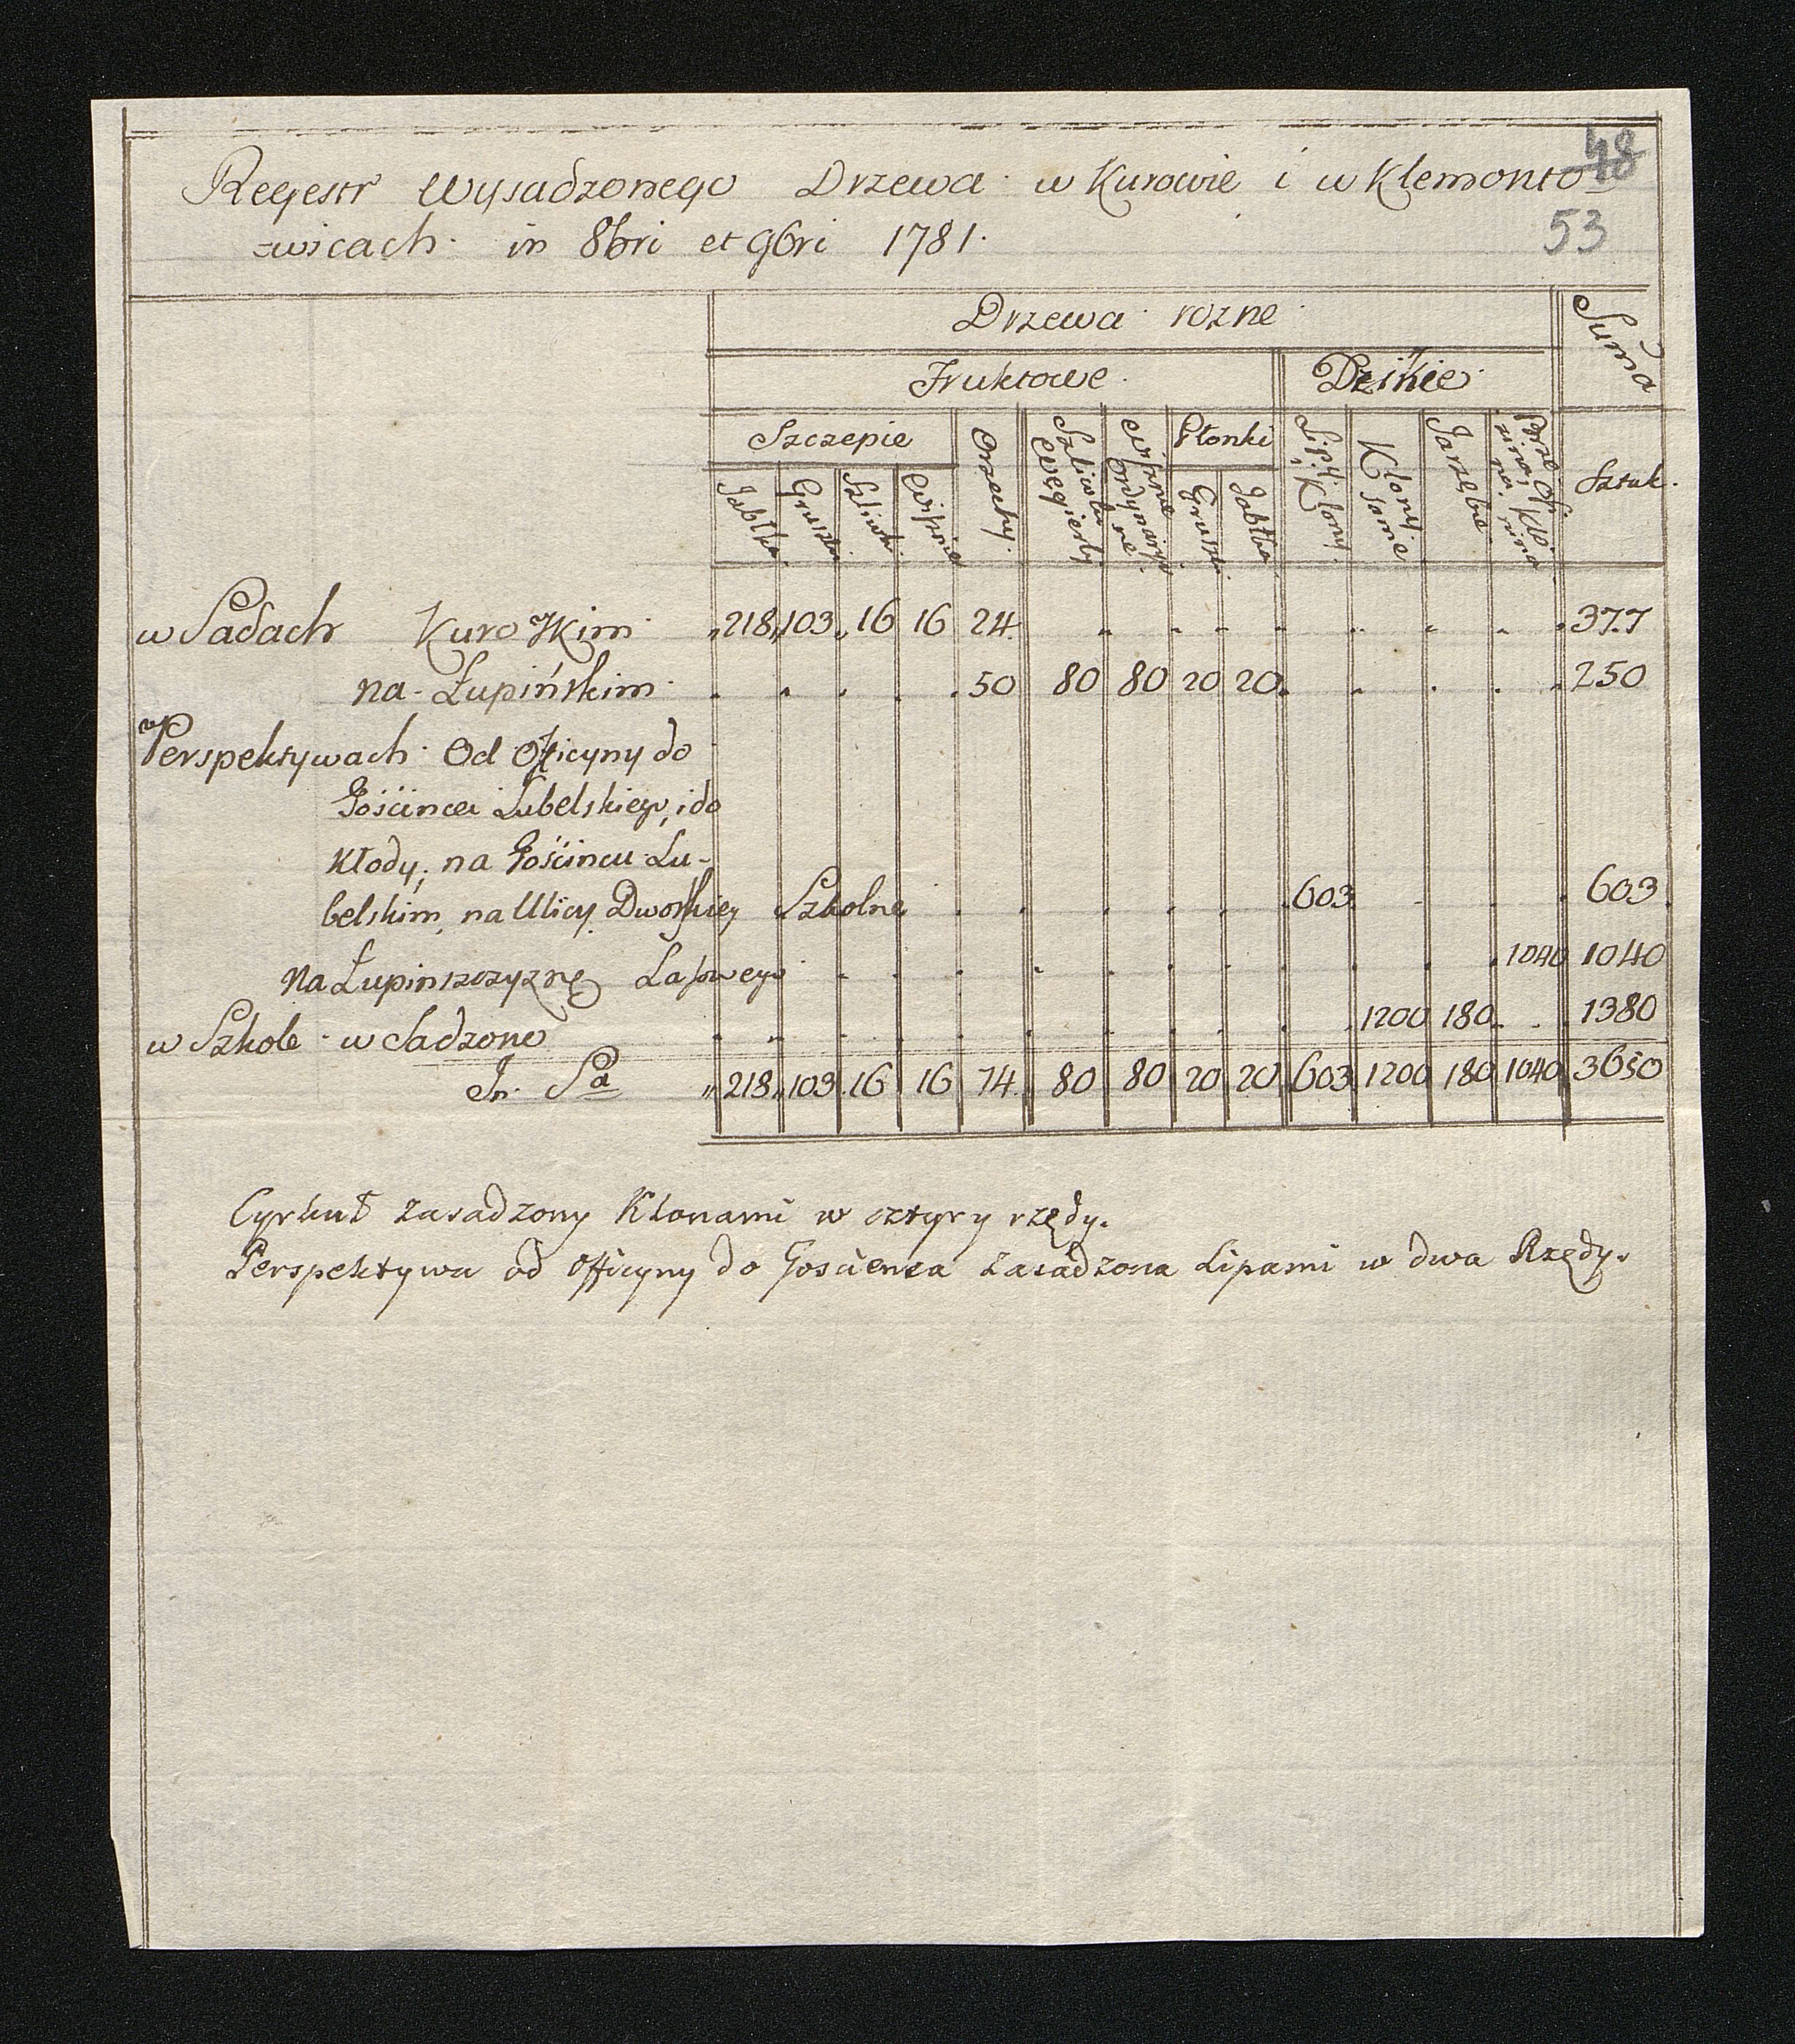 48
Regestr Wysadzonego Drzewa w Kurowie i w Klemonto
53
zwicach in 8bri et 9bri 1781.
Drzewa rozne
Suma
Fruktowe
Dzikie
Szczepie
Orzechy
Szliwki Węgierki
Wisznie ordynaryine
Płonki
Lipy i Klony
Klony same
Jarzębie
Sztuk
Jabłka
Gruszki
Szliwki
Wisznie
Gruszki
Jabłka
w Sadach Kurowskim 218 103 16 16 24 377
na Łupińskim 50 80 80 20 20 250
Perspektywach Od Oficyny do
Gościnca Lubelskiego, i do
Kłody, na Gościncu Lu-
belskim, na Ulicy Dworskiey Szkolne 603 603
Na Łupinszczyznę 1040 1040
w Szkole wsadzone 1200 180 1380
In Sa 218 103 16 16 74 80 80 20 20 603 1200 180 1040 3650
Cyrkuł zasadzony Klonami w cztyry rzędy.
Perspektywa od officyny do Goscienca zasadzona Lipami w dwa Rzędy.